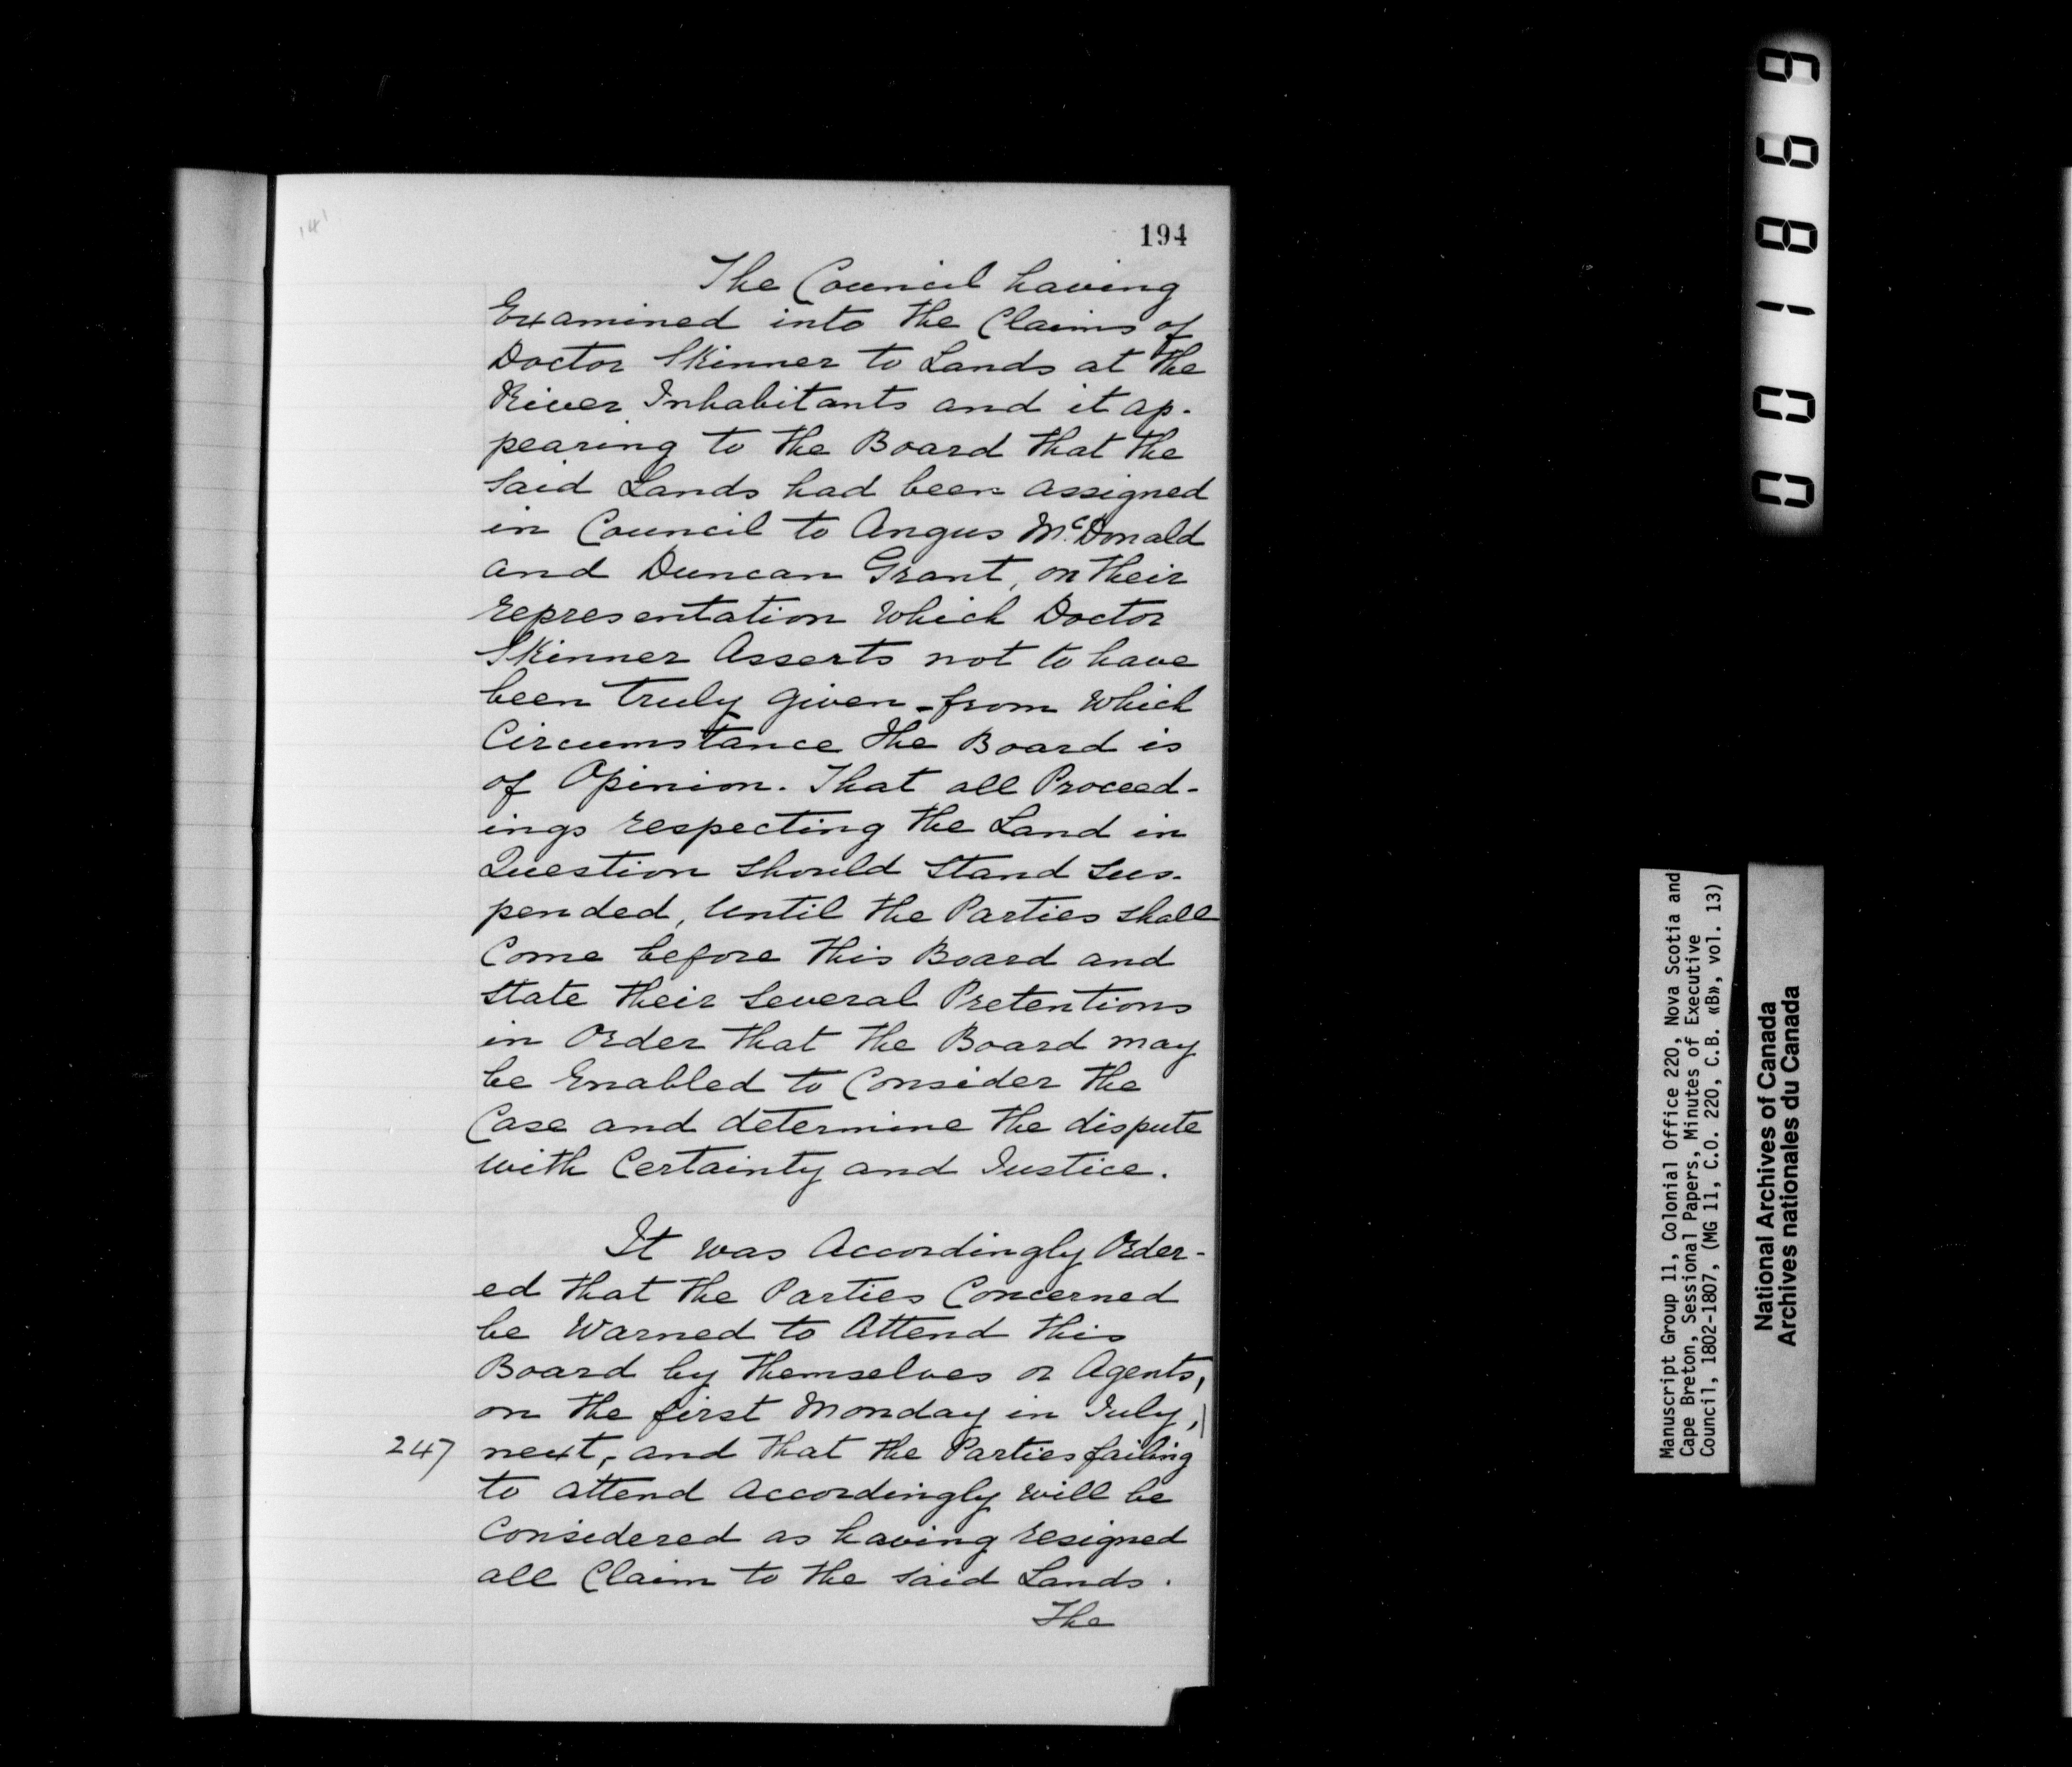 194
The Council having
Examined into the Claims of
Doctor Skinner to Lands at the
River Inhabitants and it ap-
pearing to the Board that the
Said Lands had been assigned
in Council to Angus McDonald
and Duncan Grant, on their
representation which Doctor
Skinner Asserts not to have
been truly given - from which
Circumstance the Board is
of Opinion. That all Proceed-
ings respecting the Land in
Question should Stand Sus-
pended, Until the Parties shall
Come before this Board and
State their Several Pretentions
in Order that the Board may
be Enabled to Consider the
Case and determine the dispute
with Certainty and Justice.
It was Accordingly Order-
ed that the Parties Concerned
be Warned to Attend this
Board by themselves or Agents,
on the first Monday in July,
247 next, and that the Parties failing
to attend accordingly will be
Considered as having resigned
all Claim to the said Lands.
The
001869
Manuscript Group 11, Colonial Office 220, Nova Scotia and
Cape Breton, Sessional Papers, Minutes of Executive
Council, 1802-1807, (MG 11, C.O. 220, C.B. «B», vol. 13)
National Archives of Canada
Archives nationales du Canada